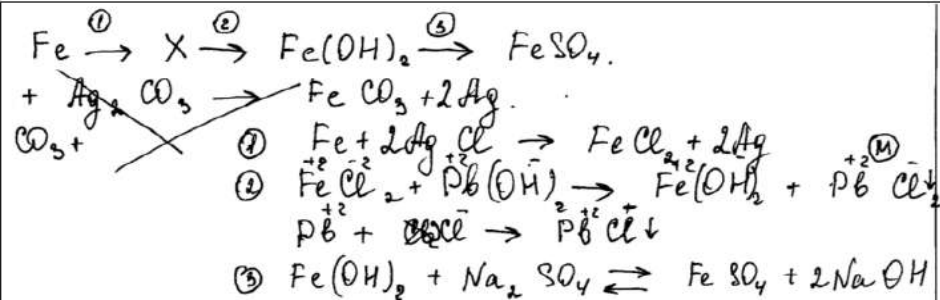 ① ② ③
Fe → X → Fe(OH)₂ → FeSO₄.
+ Ag₂ CO₃ → Fe CO₃ + 2Ag.
CO₃ +
① Fe + 2Ag Cl → FeCl₂ + 2Ag
② Fe⁺² Cl⁻²₂ + Pb⁺²(OH⁻)₂ → Fe⁺²(OH⁻)₂ + Pb⁺² Cl⁻₂↓ Ⓜ
Pb⁺² + Cl⁻ → Pb⁺² Cl⁻↓
③ Fe(OH)₂ + Na₂ SO₄ ⇄ Fe SO₄ + 2Na OH